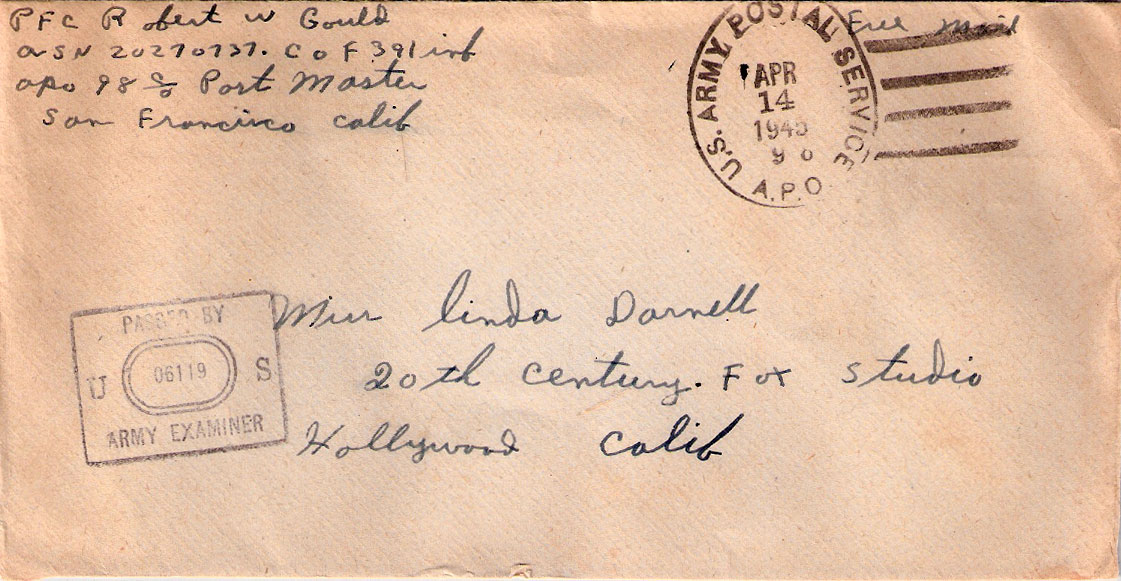 PFC Robert W Gould
ASN 20270737. Co F 391 inf
apo 98 c/o Post Master
San Francisco Calif
Free Mail
U.S. ARMY POSTAL SERVICE
APR
14
1945
98
A.P.O
Miss Linda Darnell
20th Century. Fox Studio
Hollywood Calif
PASSED BY
U 06119 S
ARMY EXAMINER